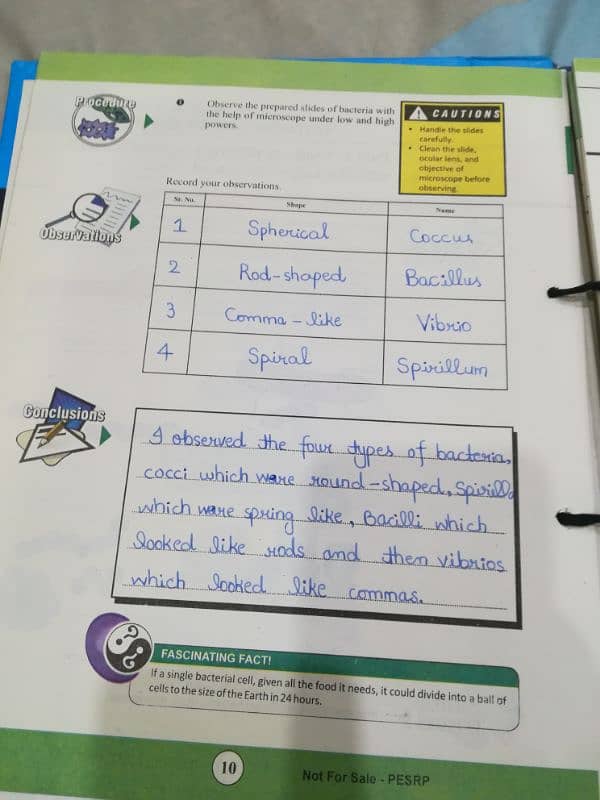 Procedure
Observe the prepared slides of bacteria with
the help of microscope under low and high
powers.
CAUTIONS
• Handle the slides
carefully.
• Clean the slide,
ocular lens, and
objective of
microscope before
observing.
Observations
Record your observations.
Sr. No. Shape Name
1 Spherical Coccus
2 Rod-shaped Bacillus
3 Comma-like Vibrio
4 Spiral Spirillum
Conclusions
I observed the four types of bacteria,
cocci which were round-shaped, Spirilla
which were spring like, Bacilli which
looked like rods and then vibrios
which looked like commas.
FASCINATING FACT!
If a single bacterial cell, given all the food it needs, it could divide into a ball of
cells to the size of the Earth in 24 hours.
10
Not For Sale - PESRP